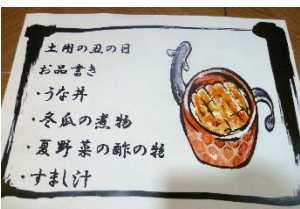 土用の丑の日
お品書き
・うな丼
・冬瓜の煮物
・夏野菜の酢の物
・すまし汁